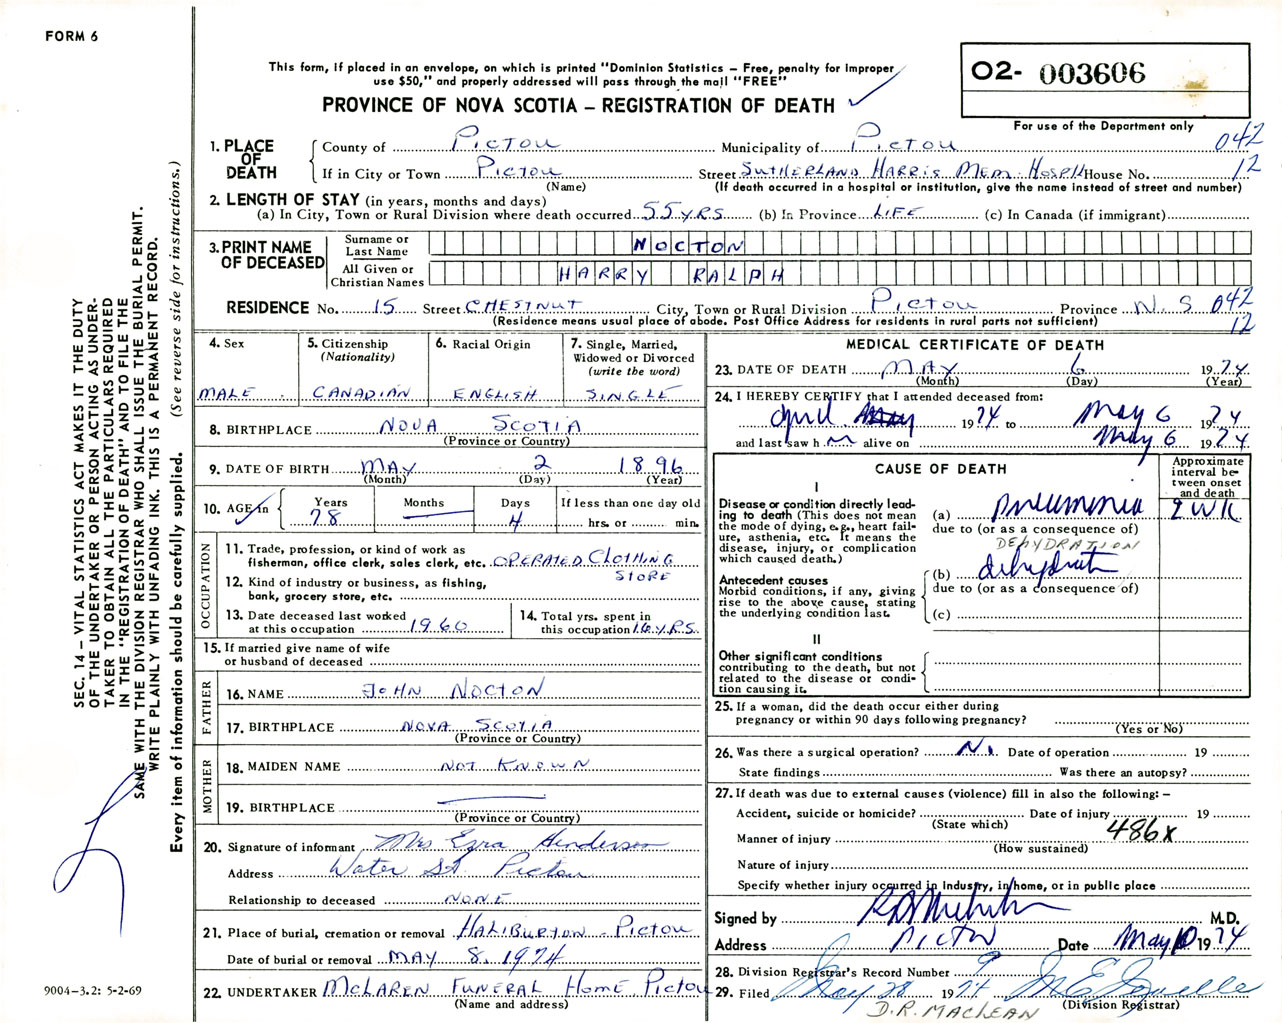 FORM 6
This form, if placed in an envelope, on which is printed "Dominion Statistics – Free, penalty for improper
use $50," and properly addressed will pass through the mail "FREE"
PROVINCE OF NOVA SCOTIA – REGISTRATION OF DEATH
02- 003606
For use of the Department only
1. PLACE OF DEATH
County of PICTOU Municipality of PICTOU 042
If in City or Town PICTOU Street SUTHERLAND HARRIS MEM. HOSP House No. 12
(Name) (If death occurred in a hospital or institution, give the name instead of street and number)
2. LENGTH OF STAY (in years, months and days)
(a) In City, Town or Rural Division where death occurred 55 YRS (b) In Province LIFE (c) In Canada (if immigrant)
3. PRINT NAME OF DECEASED
Surname or Last Name NOCTON
All Given or Christian Names HARRY RALPH
RESIDENCE No. 15 Street CHESTNUT City, Town or Rural Division PICTOU Province N.S 042
(Residence means usual place of abode. Post Office Address for residents in rural parts not sufficient) 12
4. Sex
MALE
5. Citizenship
(Nationality)
CANADIAN
6. Racial Origin
ENGLISH
7. Single, Married,
Widowed or Divorced
(write the word)
SINGLE
8. BIRTHPLACE NOVA SCOTIA
(Province or Country)
9. DATE OF BIRTH MAY 2 1896
(Month) (Day) (Year)
10. AGE in Years Months Days If less than one day old
78 — 4 hrs. or min.
OCCUPATION
11. Trade, profession, or kind of work as
fisherman, office clerk, sales clerk, etc. OPERATED CLOTHING
STORE
12. Kind of industry or business, as fishing,
bank, grocery store, etc.
13. Date deceased last worked
at this occupation 1960
14. Total yrs. spent in
this occupation 16 YRS.
15. If married give name of wife
or husband of deceased
FATHER
16. NAME JOHN NOCTON
17. BIRTHPLACE NOVA SCOTIA
(Province or Country)
MOTHER
18. MAIDEN NAME NOT KNOWN
19. BIRTHPLACE —
(Province or Country)
20. Signature of informant Mrs Ezra Henderson
Address Water St. Pictou
Relationship to deceased NONE
21. Place of burial, cremation or removal HALIBURTON - PICTOU
Date of burial or removal MAY 8, 1974
22. UNDERTAKER McLAREN FUNERAL HOME, PICTOU
(Name and address)
MEDICAL CERTIFICATE OF DEATH
23. DATE OF DEATH MAY 6 1974
(Month) (Day) (Year)
24. I HEREBY CERTIFY that I attended deceased from:
April May 1974 to May 6 1974
and last saw h m alive on May 6 1974
CAUSE OF DEATH
Approximate
interval be-
tween onset
and death
I
Disease or condition directly lead-
ing to death (This does not mean
the mode of dying, e.g., heart fail-
ure, asthenia, etc. It means the
disease, injury, or complication
which caused death.)
(a) pneumonia 2 WK
due to (or as a consequence of)
DEHYDRATION
Antecedent causes
Morbid conditions, if any, giving
rise to the above cause, stating
the underlying condition last.
(b) dehydration
due to (or as a consequence of)
(c)
II
Other significant conditions
contributing to the death, but not
related to the disease or condi-
tion causing it.
25. If a woman, did the death occur either during
pregnancy or within 90 days following pregnancy?
(Yes or No)
26. Was there a surgical operation? No Date of operation 19
State findings Was there an autopsy?
27. If death was due to external causes (violence) fill in also the following: –
Accident, suicide or homicide? Date of injury 19
(State which)
Manner of injury 486x
(How sustained)
Nature of injury
Specify whether injury occurred in Industry, in home, or in public place
Signed by M.D.
Address PICTOU Date May 10 1974
28. Division Registrar's Record Number 9
29. Filed May 28 1974
(Division Registrar)
D.R. MACLEAN
SEC. 14 – VITAL STATISTICS ACT MAKES IT THE DUTY
OF THE UNDERTAKER OR PERSON ACTING AS UNDER-
TAKER TO OBTAIN ALL THE PARTICULARS REQUIRED
IN THE "REGISTRATION OF DEATH" AND TO FILE THE
SAME WITH THE DIVISION REGISTRAR WHO SHALL ISSUE THE BURIAL PERMIT.
WRITE PLAINLY WITH UNFADING INK. THIS IS A PERMANENT RECORD.
Every item of information should be carefully supplied. (See reverse side for instructions.)
9004-3.2: 5-2-69